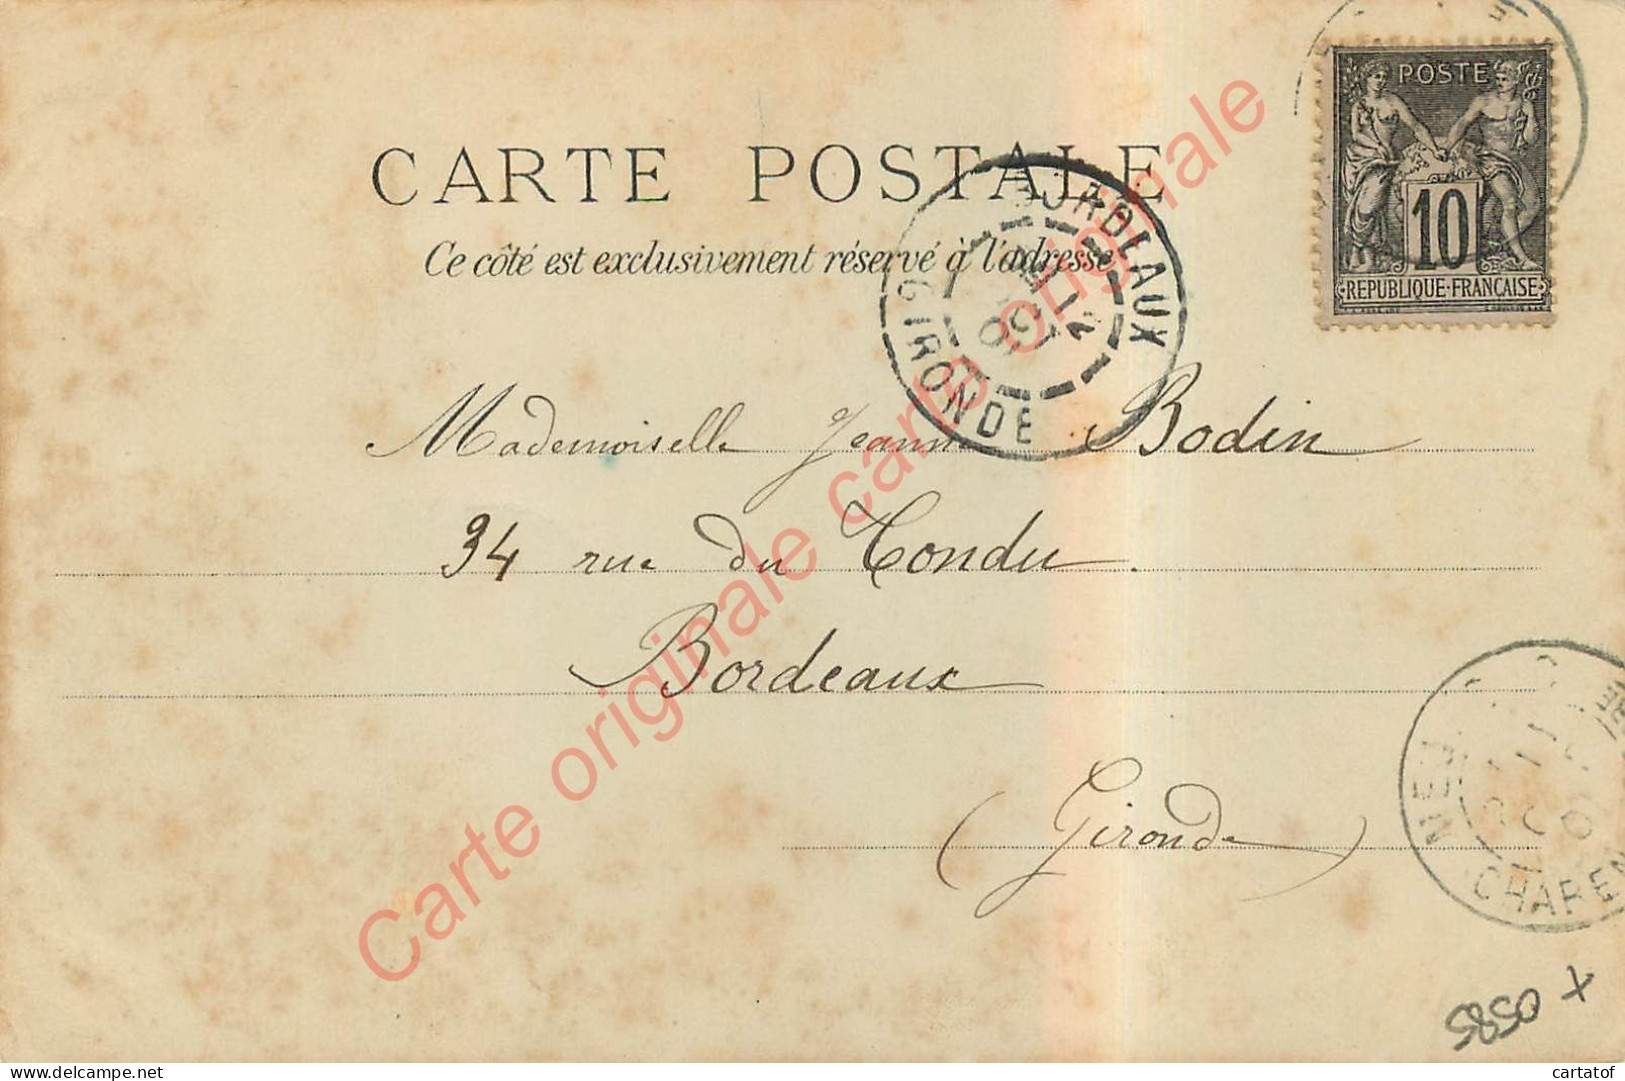 POSTE
10
REPUBLIQUE·FRANCAISE
CARTE POSTALE
Ce côté est exclusivement réservé à l'adresse
BORDEAUX
GIRONDE
Mademoiselle Jeanne Bodin
34 rue du Tondu.
Bordeaux
(Gironde)
CHAREN
5850 X
Carte originale carte originale
cartatof